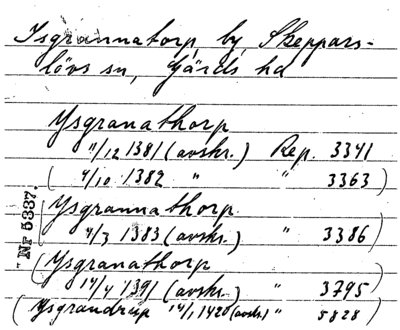 Isgrannatorp, by, Skeppars-
lövs sn, Gärds hd
Ysgranathorp
11/12 1381 (avskr.) Rep. 3341
( 4/10 1382 " " 3363 )
( Ysgrannathorp
4/3 1383 (avskr.) " 3386 )
( Ysgranathorp
14/4 1391 (avskr.) " 3795 )
( Ysgrandrup 14/1 1420 (avskr.) " 5828 )
Nr 5337.